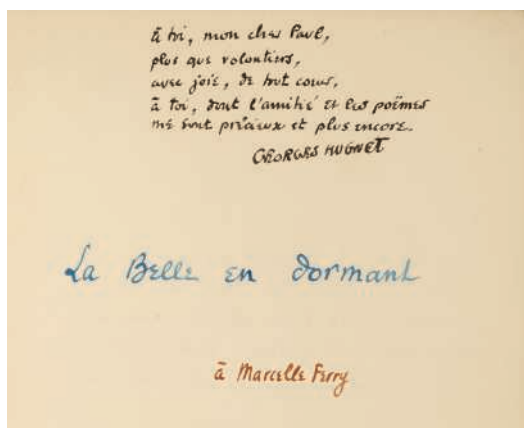 à toi, mon cher Paul,
plus que volontiers,
avec joie, de tout cœur,
à toi, dont l'amitié et les poëmes
me sont précieux et plus encore.
GEORGES HUGNET
La Belle en dormant
à Marcelle Ferry